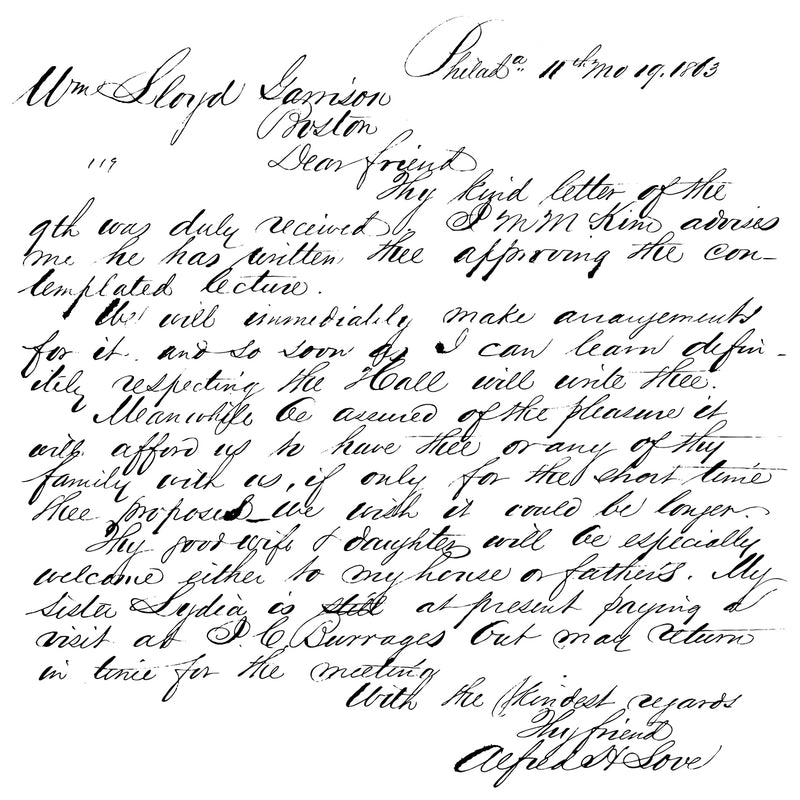 Philada. 11th Mo 19. 1863
Wm Lloyd Garrison
Boston
119
Dear friend
Thy kind letter of the
9th was duly received, J M M Kim advises
me he has written thee approving the con-
templated lecture.
We will immediately make arrangements
for it. and so soon as I can learn defin-
itely respecting the Hall will write thee.
Meanwhile be assured of the pleasure it
will afford us to have thee or any of thy
family with us, if only for the short time
thee proposes_we wish it could be longer.
Thy good wife & daughter will be especially
welcome either to my house or father's. My
sister Lydia is still at present paying a
visit at J. C. Burrages but may return
in time for the meeting
With the kindest regards
Thy friend
Alfred H Love